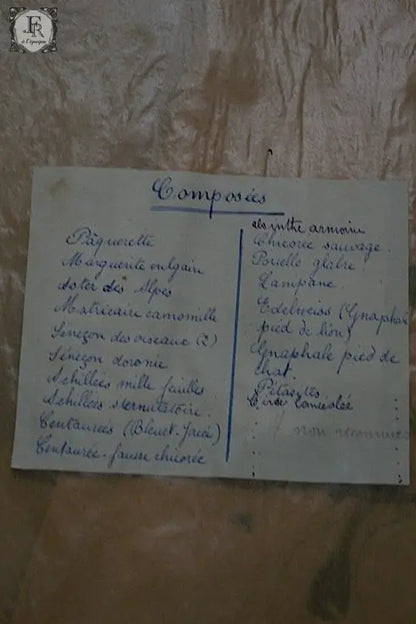 F R
à l'époque
Composées
Pâquerette
Marguerite vulgaire
Aster des Alpes
Matricaire camomille
Seneçon des oiseaux (2)
Séneçon doronic
Achillées mille feuilles
Achillées sternutatoire.
Centaurées (Bleuet. Jacée)
Centaurée. fausse chicorée
absinthe armoise
Chicorée sauvage.
Porielle glabre.
Lampane.
Edelweiss (Gnaphale
pied de lion)
Gnaphale pied de
chat.
Pétasites
lancéolée
non